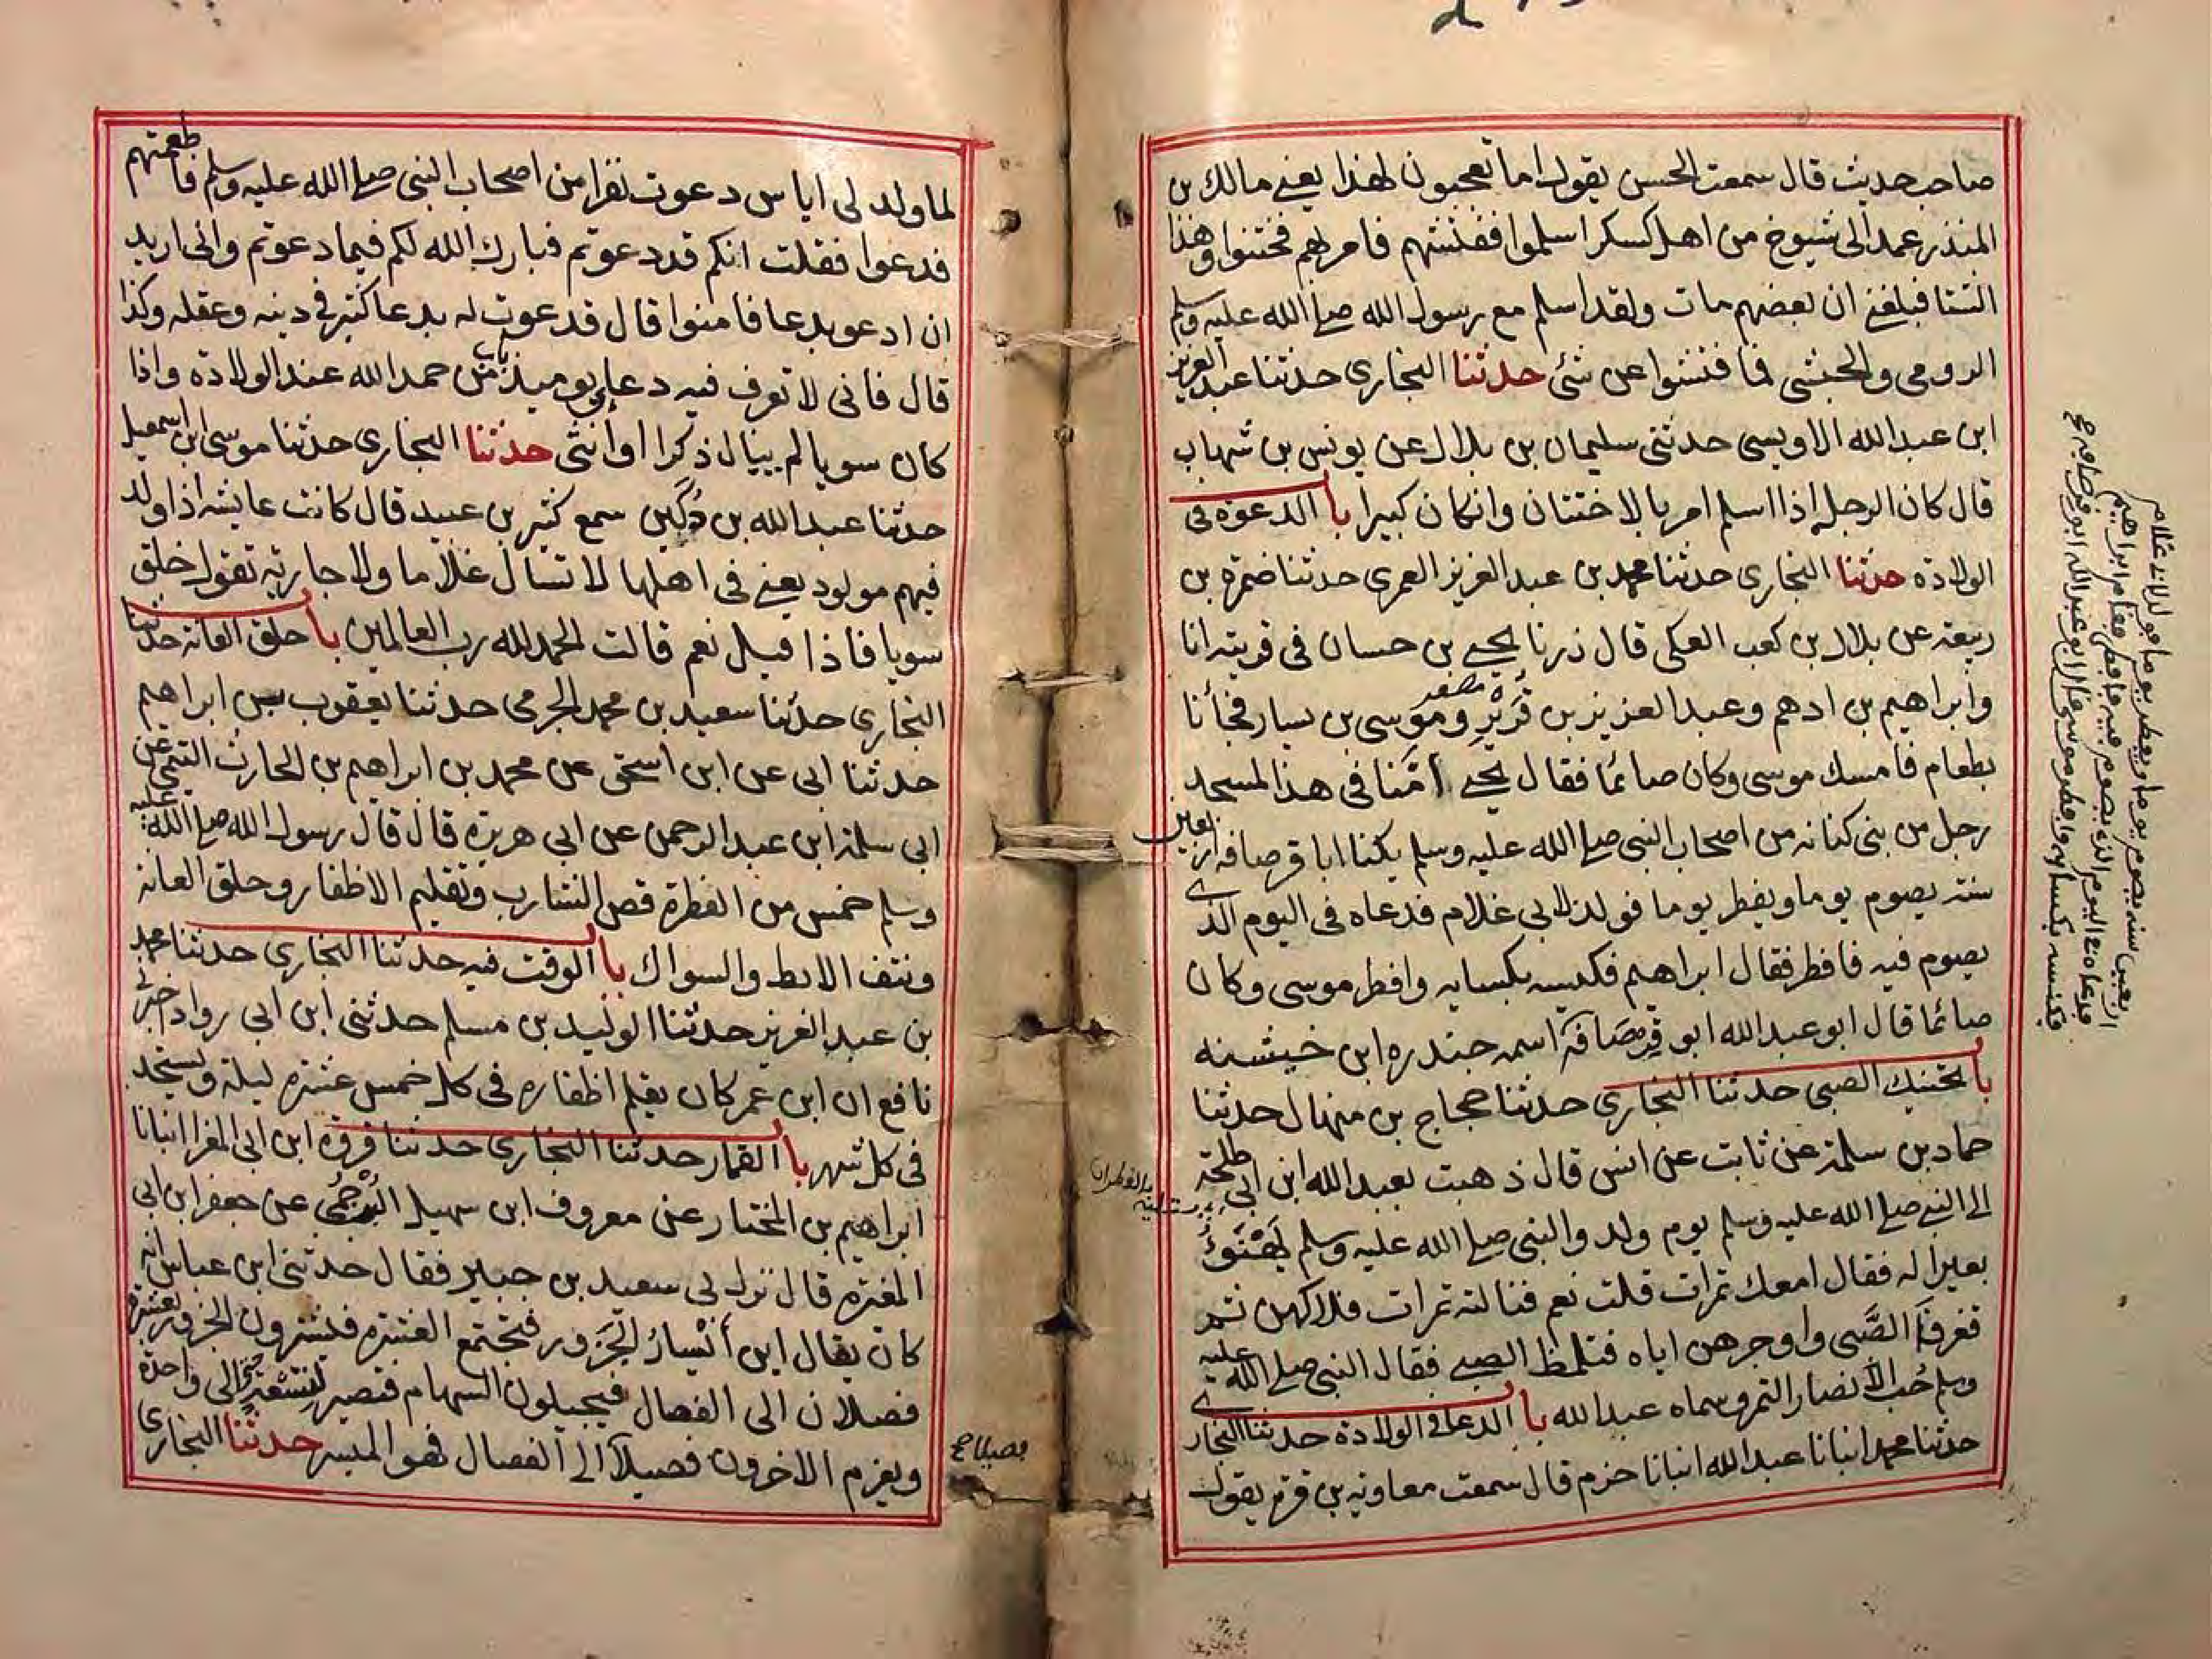 صاحب حديث قال سمعت الحسن يقول اما تعجبون لهذا يعني مالك بن
المنذر عمد الى شيوخ من اهل كسكر اسلموا ففتشهم فامر بهم فختنوا وهذا
الشتا فبلغني ان بعضهم مات ولقد اسلم مع رسول الله صلى الله عليه وسلم
الرومي والحبشي فما فتشوا عن شئ حدثنا البخاري حدثنا عبد العزيز
ابن عبد الله الاويسي حدثني سليمان بن بلال عن يونس بن شهاب
قال كان الرجل اذا اسلم امر بالاختتان وان كان كبيرا باب الدعوة في
الولادة حدثنا البخاري حدثنا محمد بن عبد العزيز العمري حدثنا ضمرة بن
ربيعة عن بلال بن كعب العكي قال زرنا يحيى بن حسان في قريته انا
وابراهيم بن ادهم وعبد العزيز بن قُرَيْرٍ وموسى بن يسار فجأنا
مصغر
بطعام فامسك موسى وكان صائما فقال يحيى أمّنا في هذا المسجد
رجل من بني كنانه من اصحاب النبي صلى الله عليه وسلم يكنا ابا قرصافه اربعين
سنة يصوم يوما ويفطر يوما فولد لابي غلام فدعاه في اليوم الذي
يصوم فيه فافطر فقال ابراهيم فكنسه بكسايه وافطر موسى وكان
صائما قال ابو عبد الله ابو قِرصَافة اسمه جندره ابن خيشنه
باب تحنيك الصبي حدثنا البخاري حدثنا حجاج بن منهال حدثنا
حماد بن سلمة عن ثابت عن انس قال ذهبت بعبد الله ابن ابي طلحة
الى النبي صلى الله عليه وسلم يوم ولد والنبي صلى الله عليه وسلم يَهْنَوءُ
بالقطران
بعيرا له فقال امعك تمرات قلت نعم فناولته تمرات فلاكهن ثم
فغرفَا الصَّبي واوجرهن اياه فتلمظ الصبي فقال النبي صلى الله عليه
وسلم حُب الأنصار التمر وسماه عبد الله باب الدعا في الولادة حدثنا البخاري
حدثنا محمد انبانا عبد الله انبانا حزم قال سمعت معاوية بن قرة يقول
اربعين سنه يصوم يوما ويفطر يوما فولد لابي غلام
فدعاه في اليوم الذي يصوم فيه فافطر فقام ابراهيم
فكنسه بكسايه وافطر موسى قال ابو عبد الله ابو قرصافه
لما ولد لي اياس دعوت نفرا من اصحاب النبي صلى الله عليه وسلم فاطعمتهم
فدعوا فقلت انكم قد دعوتم فبارك الله لكم فيما دعوتم واني اريد
ان ادعو بدعا فامنوا قال فدعوت له بدعا كثير في دينه وعقله وكذا
قال فاني لا تعرف فيه دعا يوميذ باب من حمد الله عند الولادة واذا
كان سويا لم يبال ذكرا او أنثى حدثنا البخاري حدثنا موسى ابن اسمعيل
حدثنا عبد الله بن دُكَين سمع كثير بن عبيد قال كانت عايشه اذا ولد
فيهم مولود يعني في اهلها لا تسال غلاما ولا جارية تقول خلق
سويا فاذا قيل نعم قالت الحمد لله رب العالمين باب حلق العانه حدثنا
البخاري حدثنا سعيد بن محمد الجرمي حدثنا يعقوب بن ابراهيم
حدثنا ابي عن ابن اسحق عن محمد بن ابراهيم بن الحارث التيمي عن
ابي سلمة ابن عبد الرحمن عن ابي هريرة قال قال رسول الله صلى الله عليه
وسلم خمس من الفطرة قص الشارب وتقليم الاظفار وحلق العانة
ونتف الابط والسواك باب الوقت فيه حدثنا البخاري حدثنا محمد
بن عبد العزيز حدثنا الوليد بن مسلم حدثني ابن ابي رواد اخبرني
نافع ان ابن عمر كان يقلم اظفاره في كل خمس عشرة ليلة ويستحد
في كل شهر باب القمار حدثنا البخاري حدثنا فروة ابن ابي المغرا انبانا
ابراهيم بن المختار عن معروف ابن سهيل البُرْجُمي عن جعفر ابن ابي
المغيره قال نزل لي سعيد بن جبير فقال حدثني ابن عباس انه
كان يقال اين أيْسار الجَزور فيجتمع العشره فيشترون الجزور بعشرة
فصلان الى الفصال فيجيلون السهام فتصير لتسعة حتى الى واحدة
ويغرم الاخرون فصيلاً الى الفصال فهو الميسر حدثنا البخاري
فصيلا صح